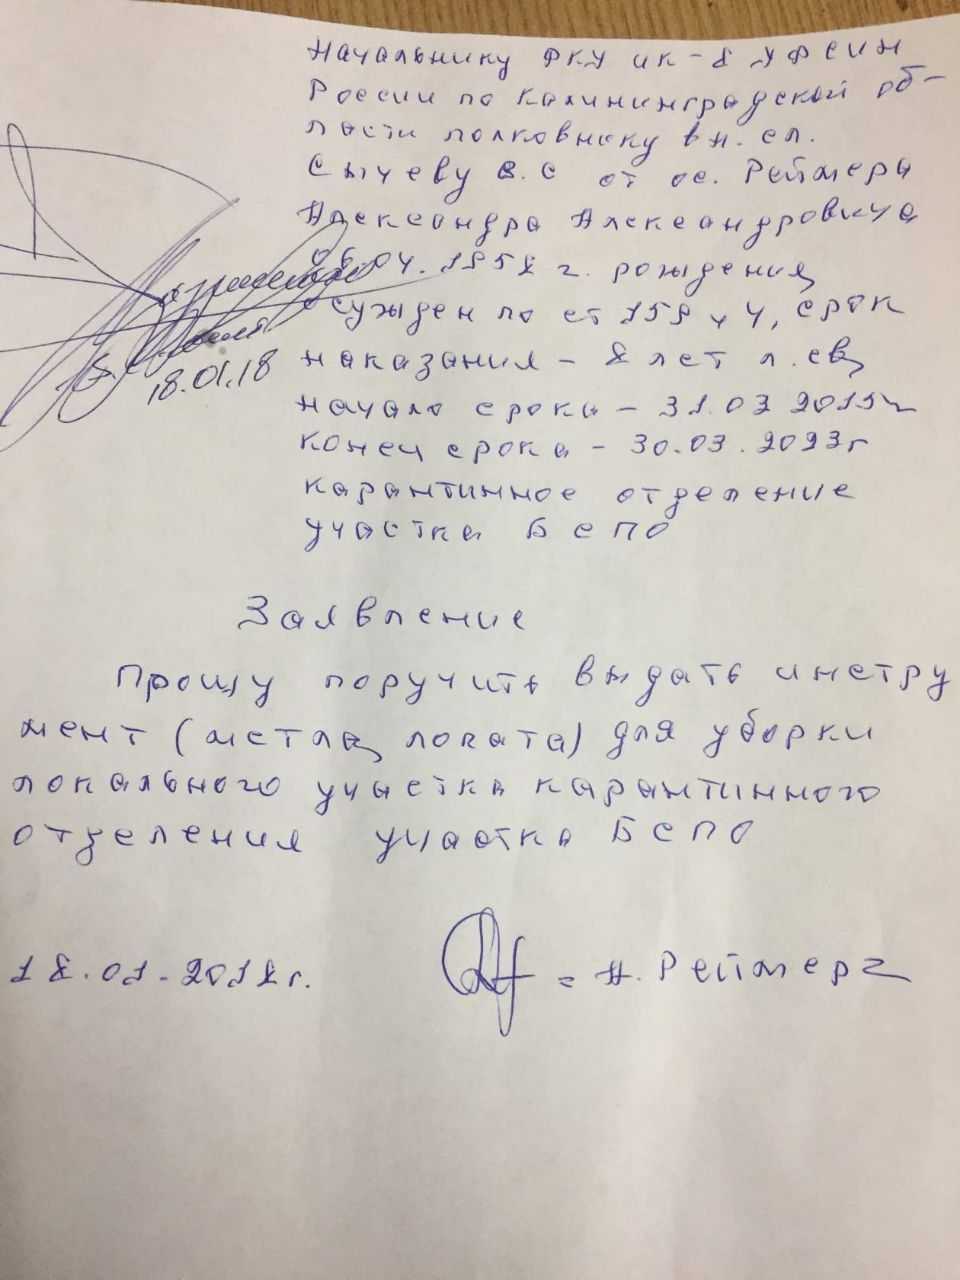 Начальнику ФКУ ИК-8 УФСИН
России по Калининградской об-
ласти полковнику вн. сл.
Сычеву В. С от ос. Реймера
Александра Александровича
04.1958 г. рождения,
осужден по ст 159 ч 4, срок
наказания - 8 лет л. св,
начало срока - 31.03 2015г
конец срока - 30.03.2023г
карантинное отделение
участка БСПО
18.01.18
Заявление
Прошу поручить выдать инстру
мент (метла, лопата) для уборки
локального участка карантинного
отделения участка БСПО
18.01-2018г.
А. Реймер